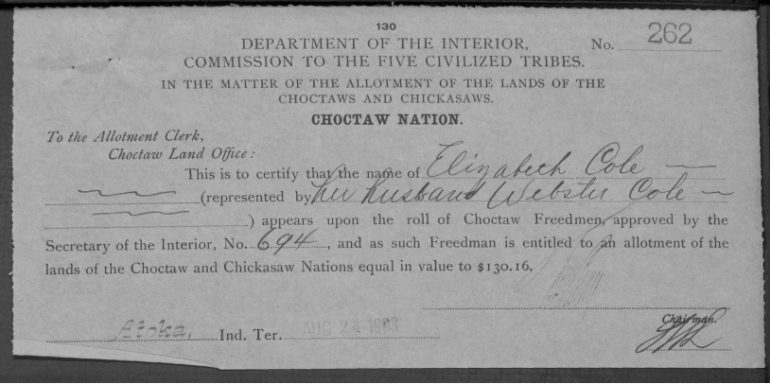 130
DEPARTMENT OF THE INTERIOR, No. 262
COMMISSION TO THE FIVE CIVILIZED TRIBES.
IN THE MATTER OF THE ALLOTMENT OF THE LANDS OF THE
CHOCTAWS AND CHICKASAWS.
CHOCTAW NATION.
To the Allotment Clerk,
Choctaw Land Office:
This is to certify that the name of Elizabeth Cole
(represented by her husband Webster Cole
) appears upon the roll of Choctaw Freedmen, approved by the
Secretary of the Interior, No. 694, and as such Freedman is entitled to an allotment of the
lands of the Choctaw and Chickasaw Nations equal in value to $130.16.
Chairman.
Atoka, Ind. Ter. AUG 24 1903